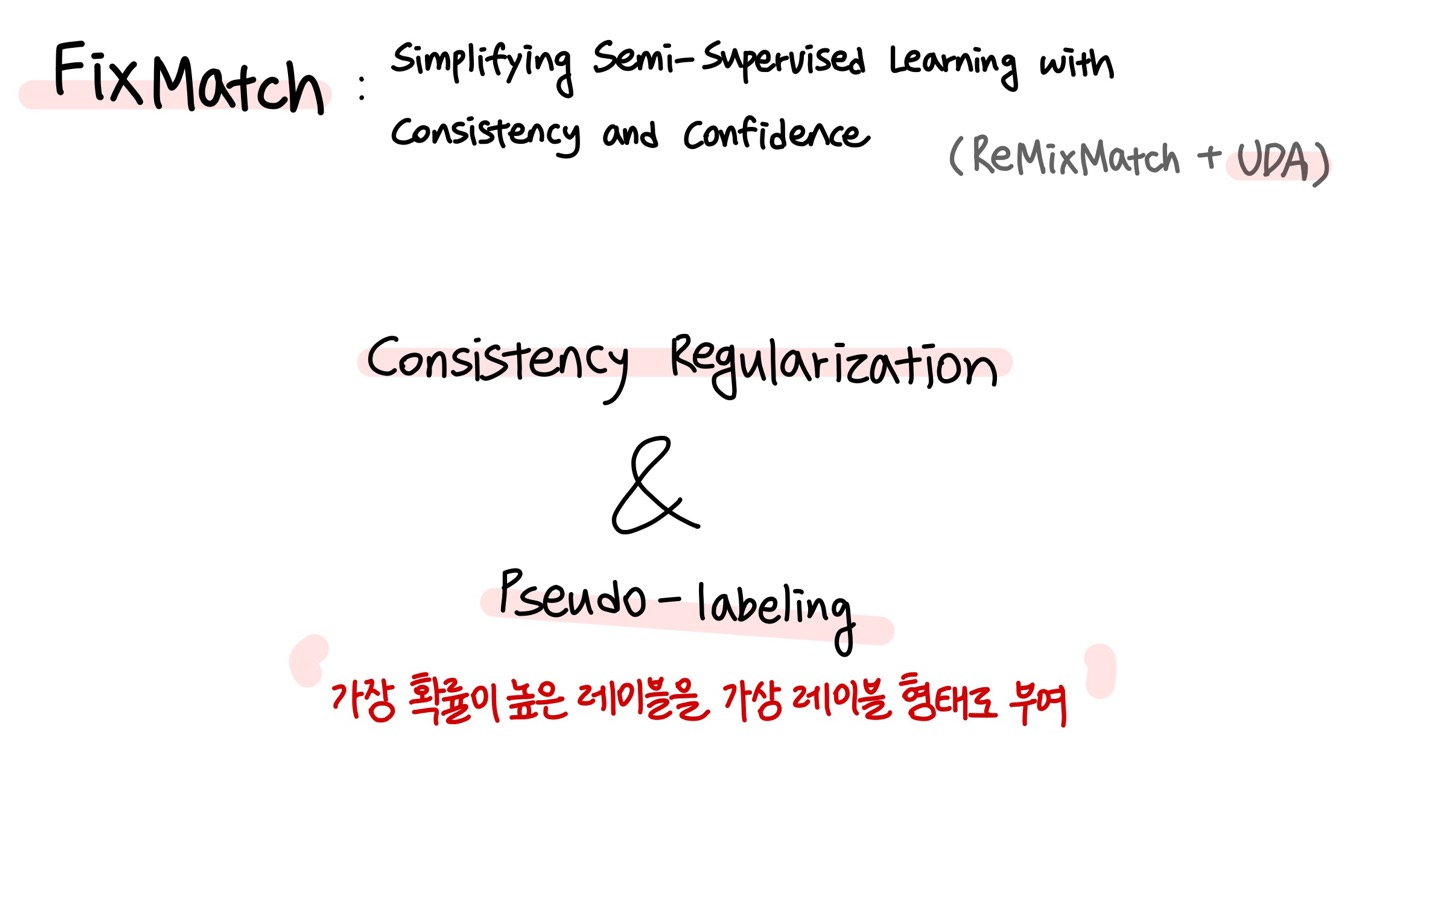 FixMatch : Simplifying Semi-Supervised Learning with
Consistency and Confidence
(ReMixMatch + UDA)
Consistency Regularization
&
Pseudo-labeling
가장 확률이 높은 레이블을 가상 레이블 형태로 부여